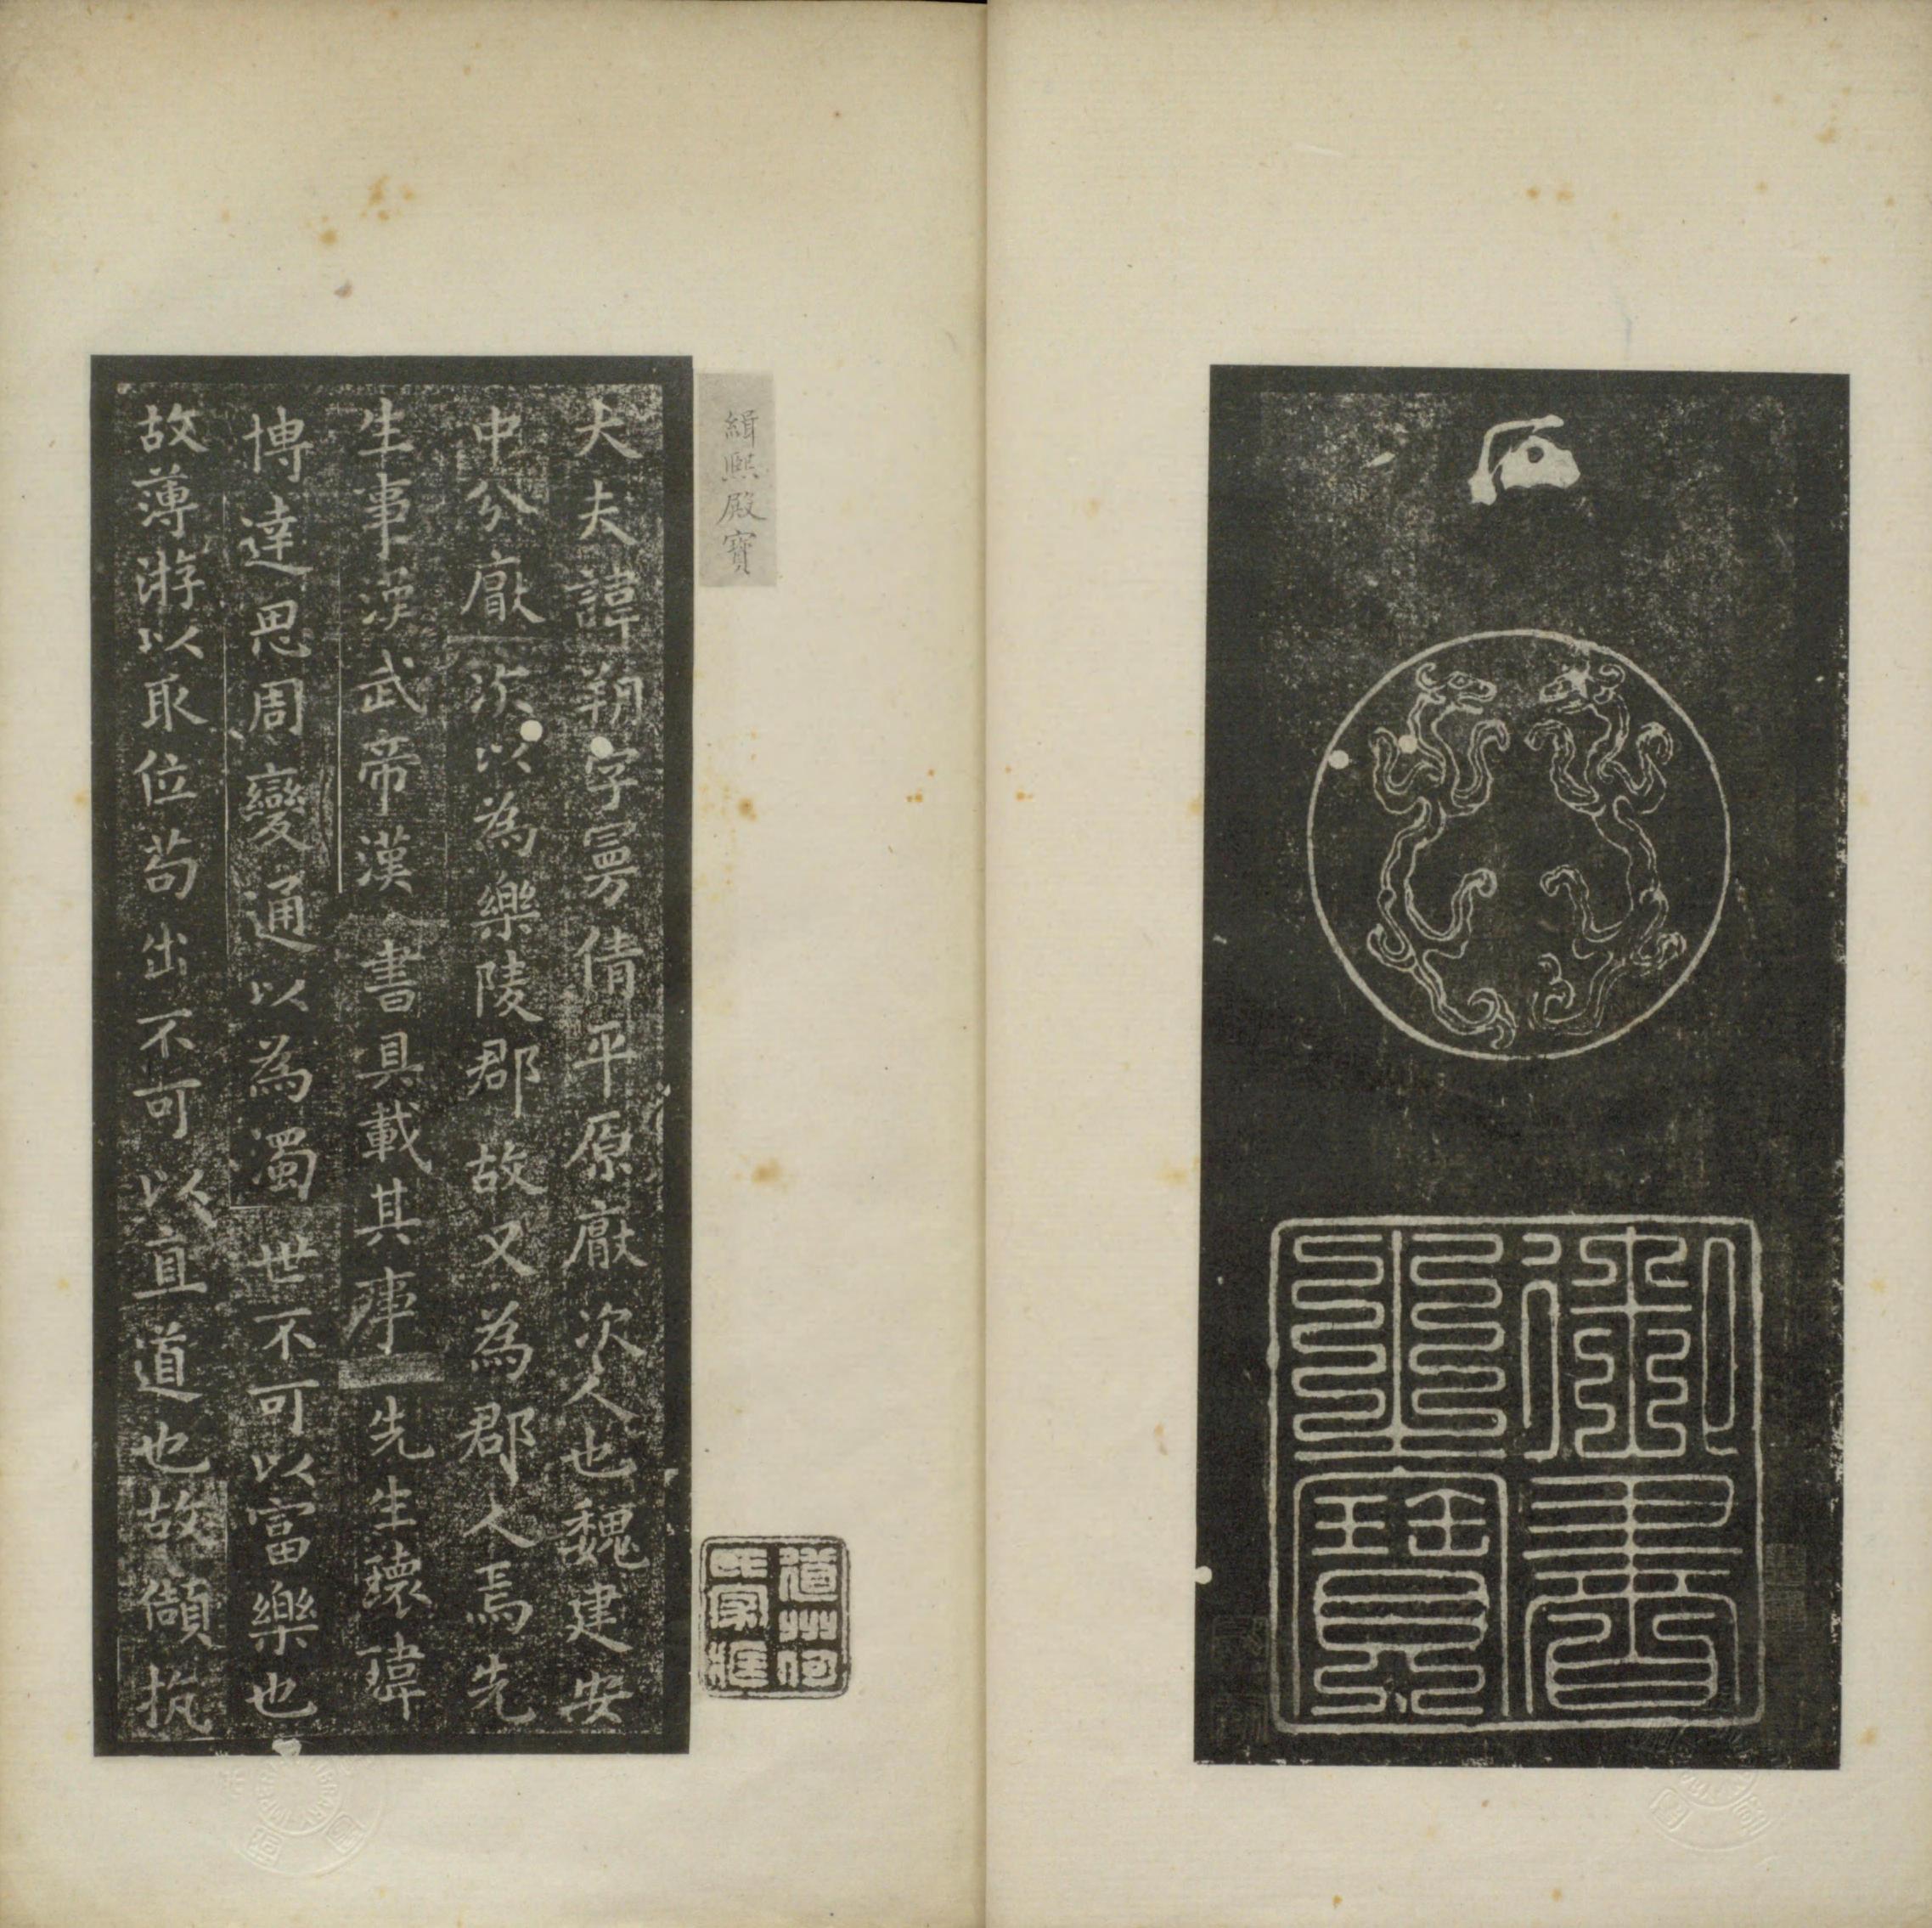 御書
之寶
緝熙殿寶
道州何
氏家藏
大夫諱朔字曼倩平原厭次人也魏建安
中分厭次以為樂陵郡故又為郡人焉先
生事漢武帝漢書具載其事先生瓌瑋
博達思周變通以為濁世不可以富樂也
故薄游以取位苟出不可以直道也故頡抗